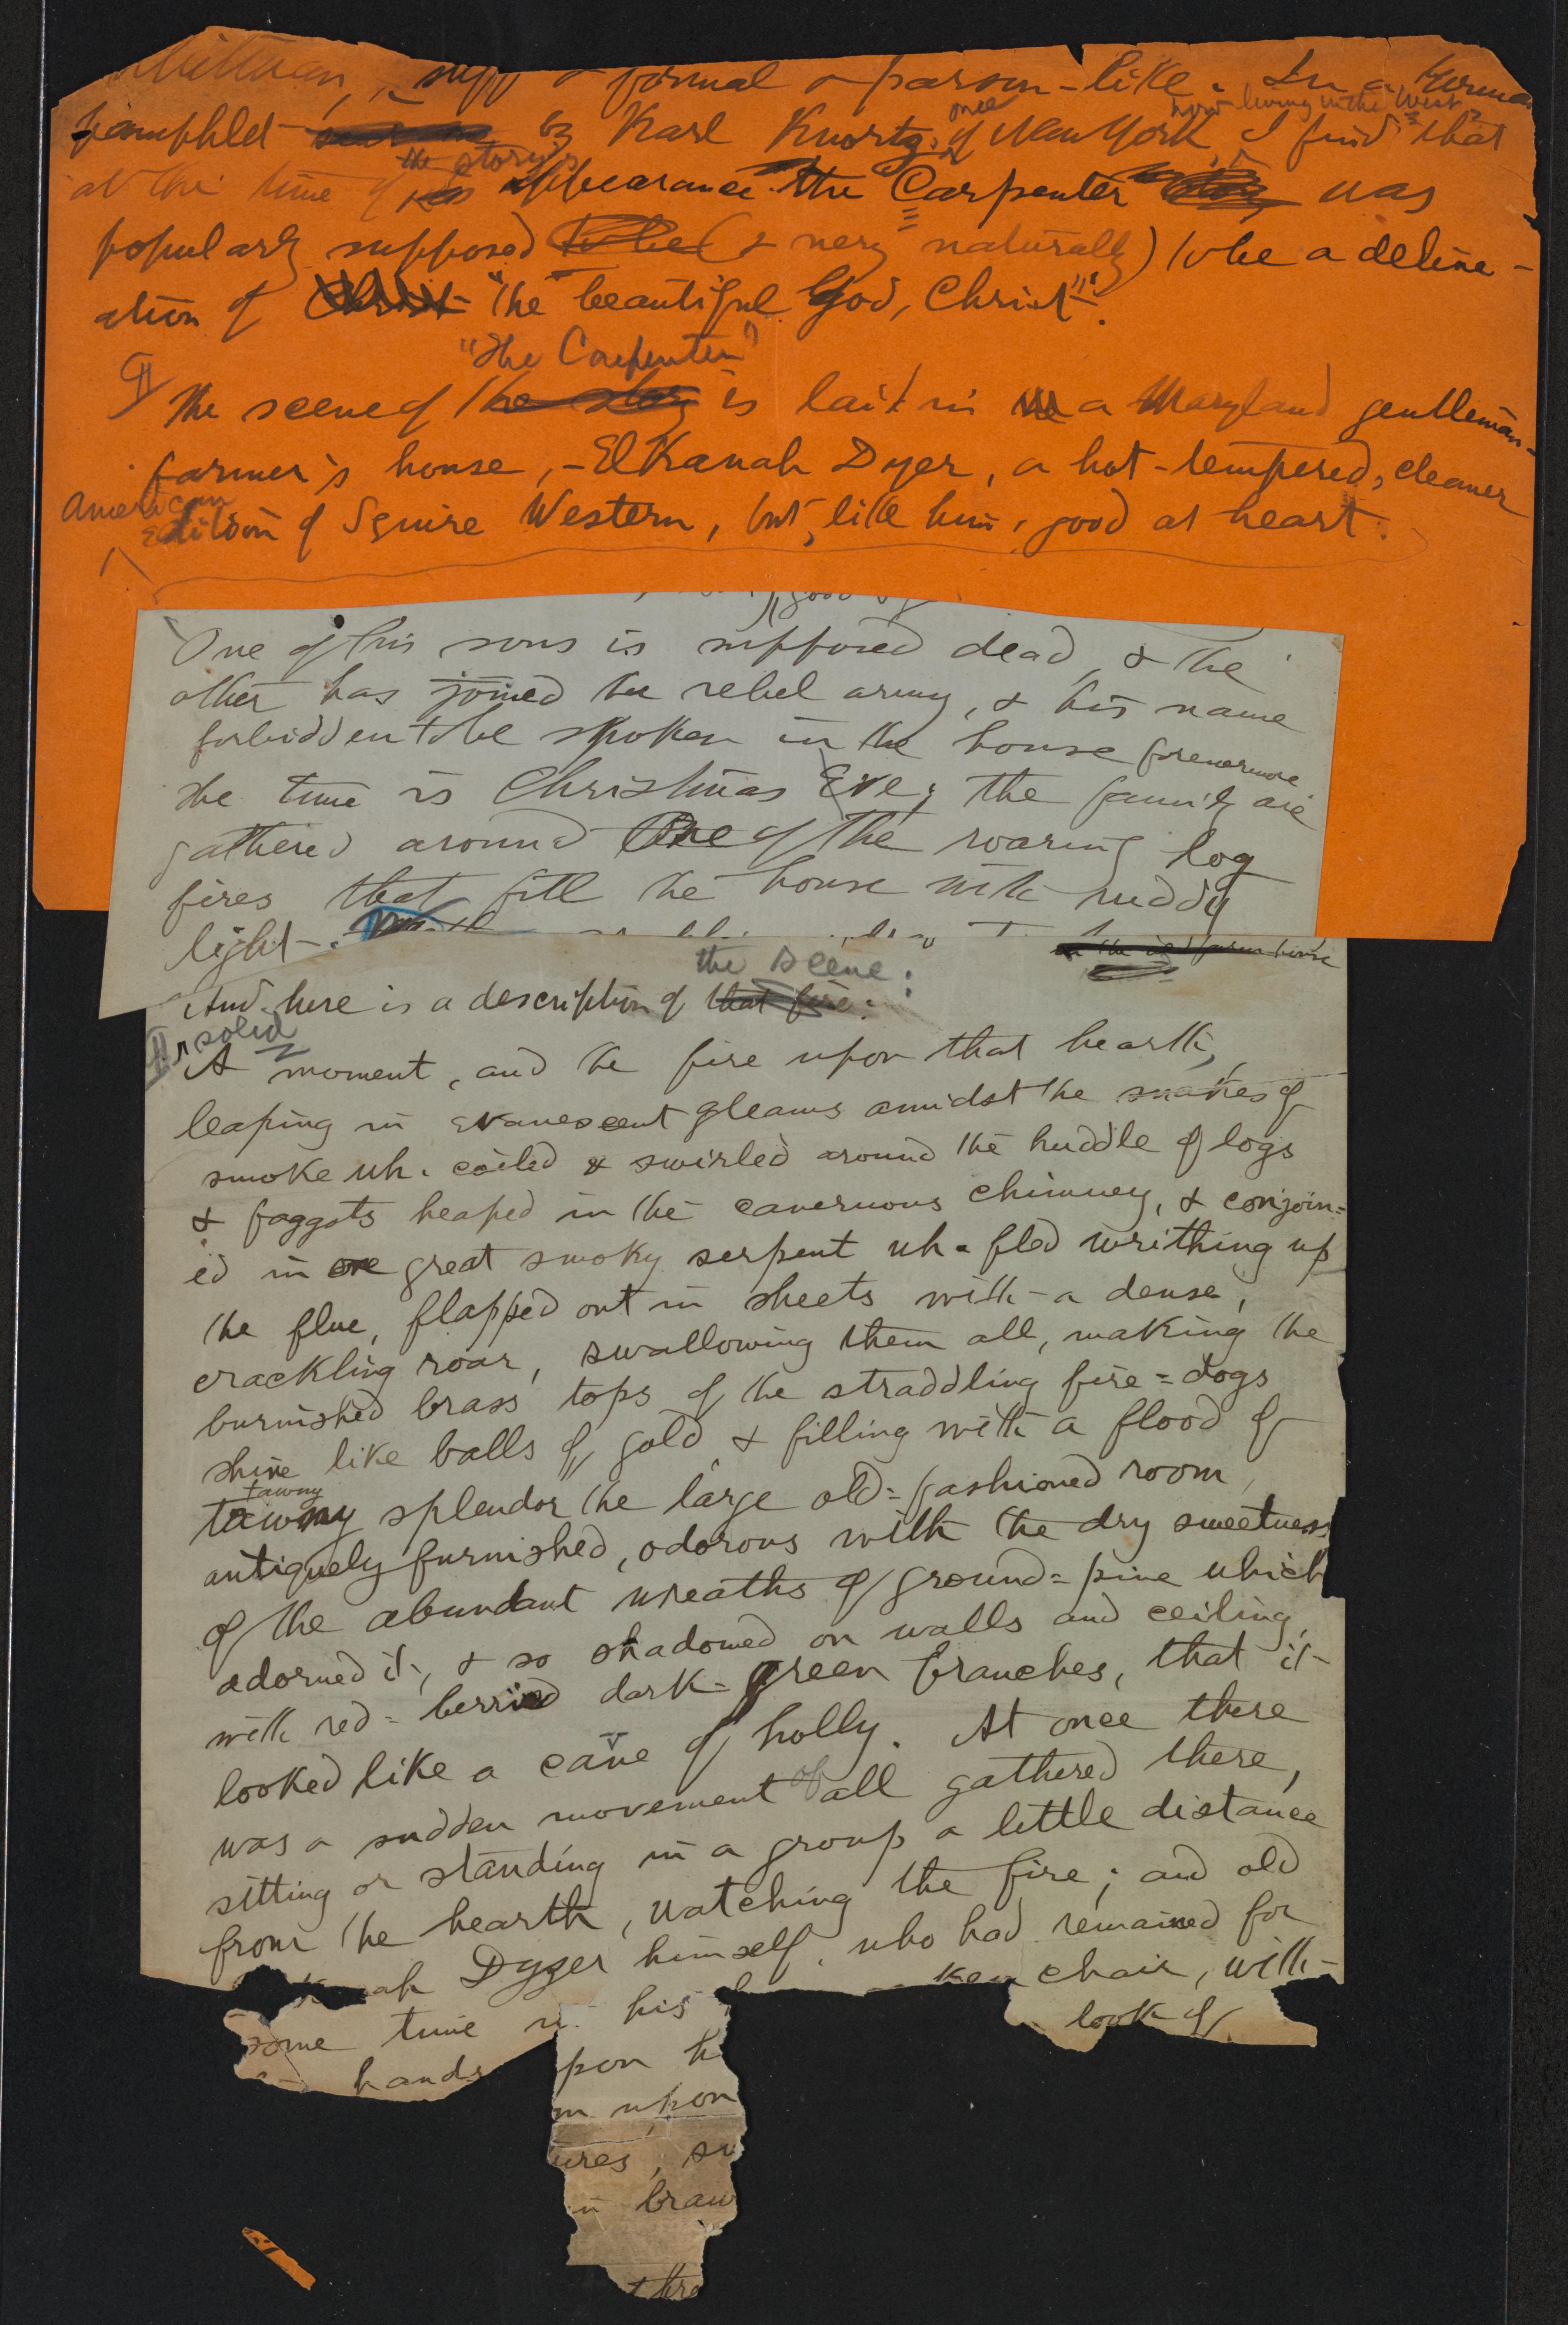 Whitman, stiff & formal & parson-like. In a German
once now living in the West,
pamphlet by Karl Knortz, of New York I find that
the story's
at the time of appearance the Carpenter was
popularly supposed (& very naturally) to be a deline-
ation of "the beautiful God, Christ".
"The Carpenter"
¶ The scene of the story is laid in a Maryland gentleman-
farmer's house, - Elkanah Dyer, a hot-tempered, cleaner
American
edition of Squire Western, but, like him, good at heart.
One of his sons is supposed dead, & the
other has joined the rebel army, & his name
forbidden to be spoken in the house forevermore
The time is Christmas Eve; the family are
gathered around One of the roaring log
fires that fill the house with ruddy
light.
in the old farm house
the scene:
And here is a description of that fire:
¶ solid
A moment, and the fire upon that hearth,
leaping in evanescent gleams amidst the snakes of
smoke wh. coiled & swirled around the huddle of logs
& faggots heaped in the cavernous chimney, & conjoin=
ed in one great smoky serpent wh. fled writhing up
the flue, flapped out in sheets with a dense,
crackling roar, swallowing them all, making the
burnished brass tops of the straddling fire=dogs
shine like balls of gold, & filling with a flood of
tawny
tawny splendor the large old=fashioned room,
antiquely furnished, odorous with the dry sweetness
of the abundant wreaths of ground=pine which
adorned it, & so shadowed on walls and ceiling,
with red=berried dark-green branches, that it
looked like a cave of holly. At once there
was a sudden movement of all gathered there,
sitting or standing in a group a little distance
from the hearth, watching the fire; and old
ah Dyzer himself, who had remained for
some time his ken chair, with
hands pon h look of
m upon
ures, su
n braw
thro